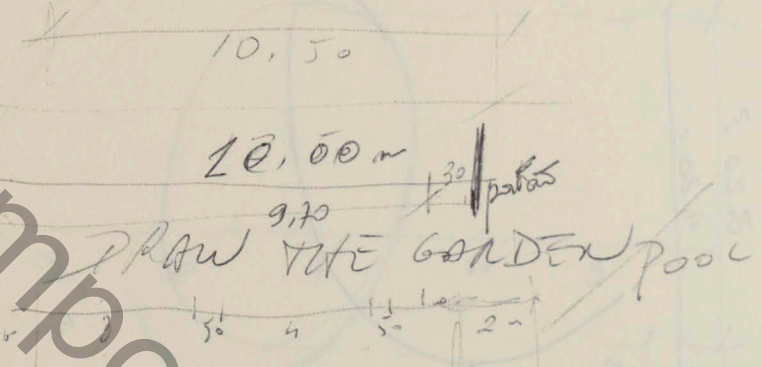 10,50
10,00 m
30 portão
9,70
DRAW THE GARDEN POOL
3 50 4 50 10 2 m